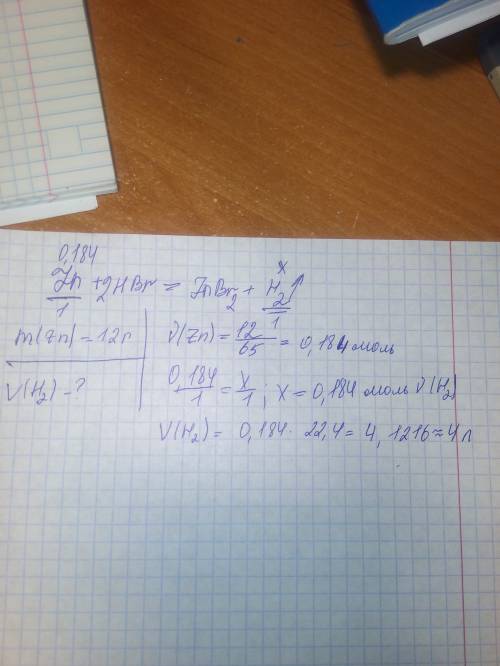 0,184 x
Zn + 2HBr = ZnBr2 + H2↑
1 1
m(Zn) = 12г
V(H2) - ?
ν(Zn) = 12/65 = 0,184 моль
0,184/1 = x/1; x = 0,184 моль ν(H2)
V(H2) = 0,184 · 22,4 = 4,1216 ≈ 4 л